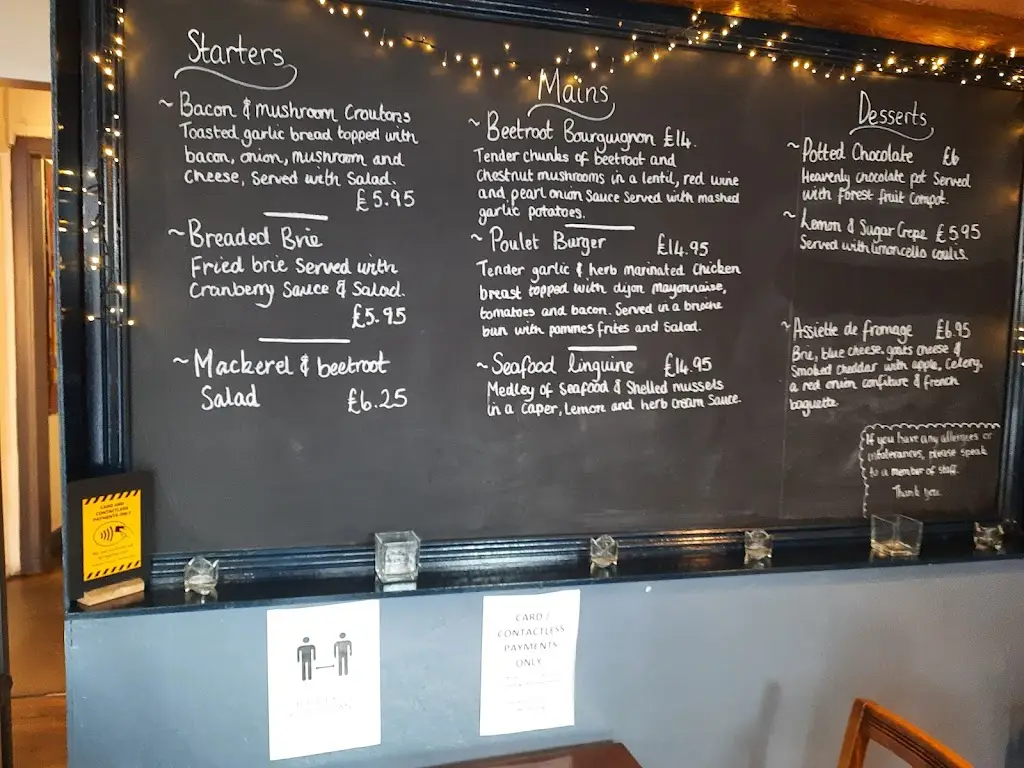 Starters
~ Bacon & mushroom Croutons
Toasted garlic bread topped with
bacon, onion, mushroom and
cheese, Served with Salad.
£5.95
~ Breaded Brie
Fried brie Served with
Cranberry Sauce & Salad.
£5.95
~ Mackerel & beetroot
Salad £6.25
Mains
~ Beetroot Bourguignon £14.
Tender chunks of beetroot and
chestnut mushrooms in a lentil, red wine
and pearl onion Sauce Served with mashed
garlic potatoes.
~ Poulet Burger £14.95
Tender garlic & herb marinated chicken
breast topped with dijon mayonnaise,
tomatoes and bacon. Served in a brioche
bun with pommes frites and Salad.
~ Seafood linguine £14.95
Medley of Seafood & Shelled mussels
in a caper, Lemon and herb cream Sauce.
Desserts
~ Potted Chocolate £6
Heavenly chocolate pot Served
with forest fruit Compot.
~ Lemon & Sugar Crepe £5.95
Served with limoncello coulis.
~ Assiette de fromage £6.95
Brie, blue cheese, goats cheese &
Smoked cheddar with apple, Celery,
a red onion confiture & french
baguette
If you have any allergies or
intolerances, please speak
to a member of staff.
Thank you.
CARD AND
CONTACTLESS
PAYMENTS ONLY
CARD /
CONTACTLESS
PAYMENTS
ONLY